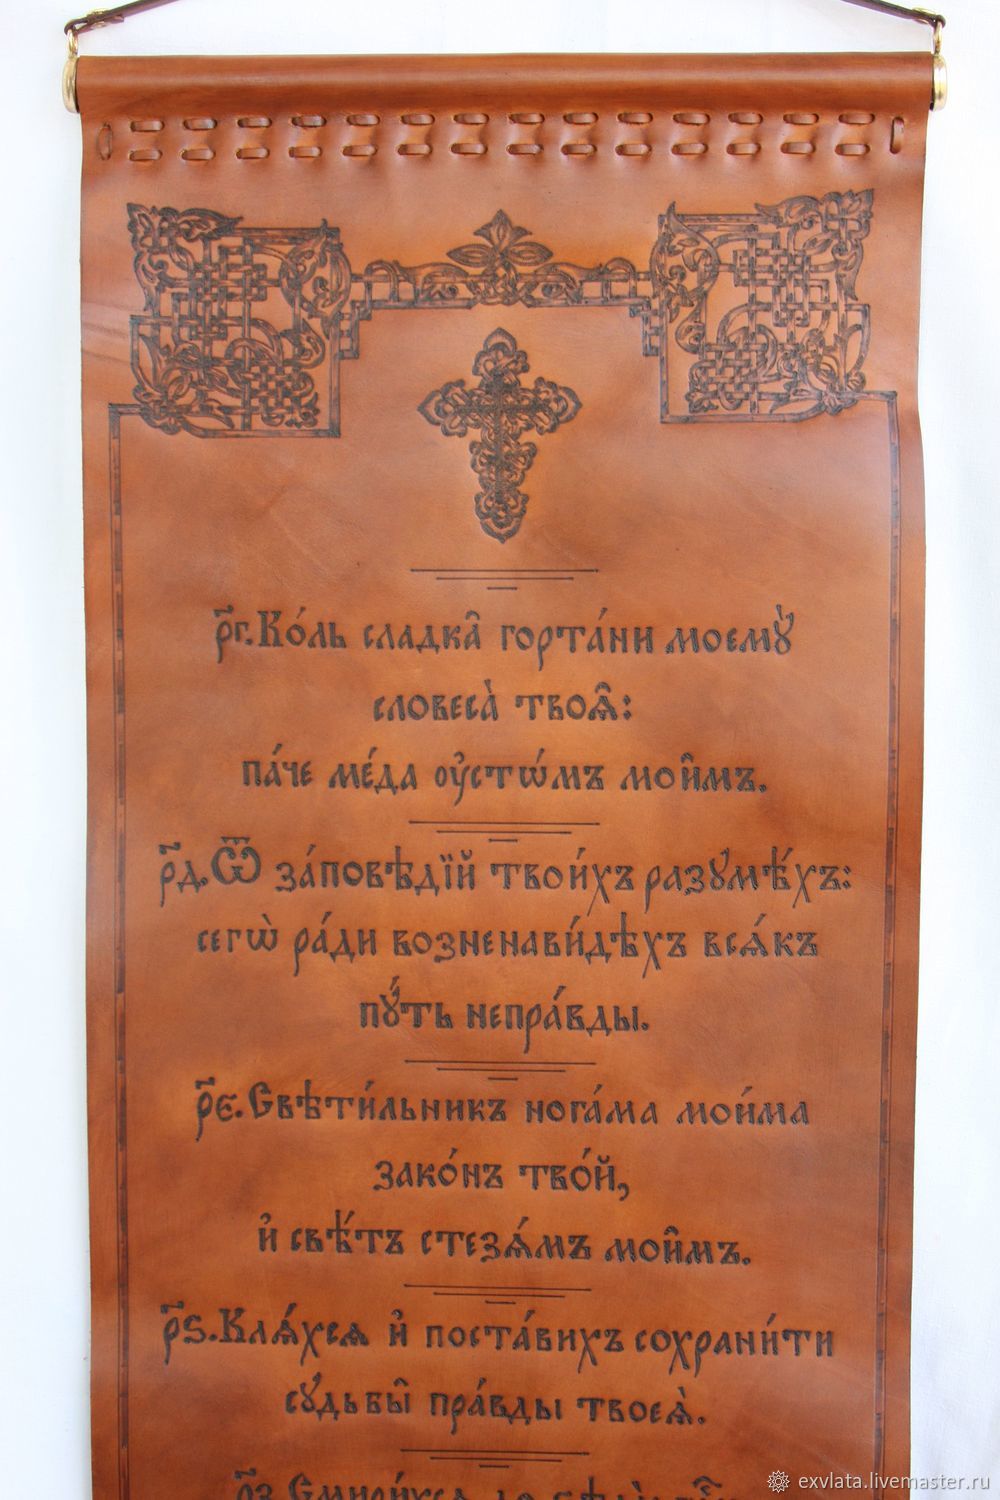 р҃г. Ко́ль сладка̑ горта́ни моемꙋ̀
словеса̀ твоѧ̑:
па́че ме́да ᲂу҆стѡ́мъ мои̑мъ.
р҃д. Ѿ за́повѣдїй твои́хъ разумѣ́хъ:
сегѡ̀ ра́ди возненави́дѣхъ всѧ́къ
пꙋ́ть непра́вды.
р҃є. Свѣти́льникъ нога́ма мои́ма
зако́нъ тво́й,
и҆ свѣ́тъ стезѧ́мъ мои̑мъ.
р҃ѕ. Клѧ́хсѧ и҆ поста́вихъ сохрани́ти
сꙋдьбы̑ пра́вды твоеѧ̀.
р҃з. Смири́хсѧ
exvlata.livemaster.ru